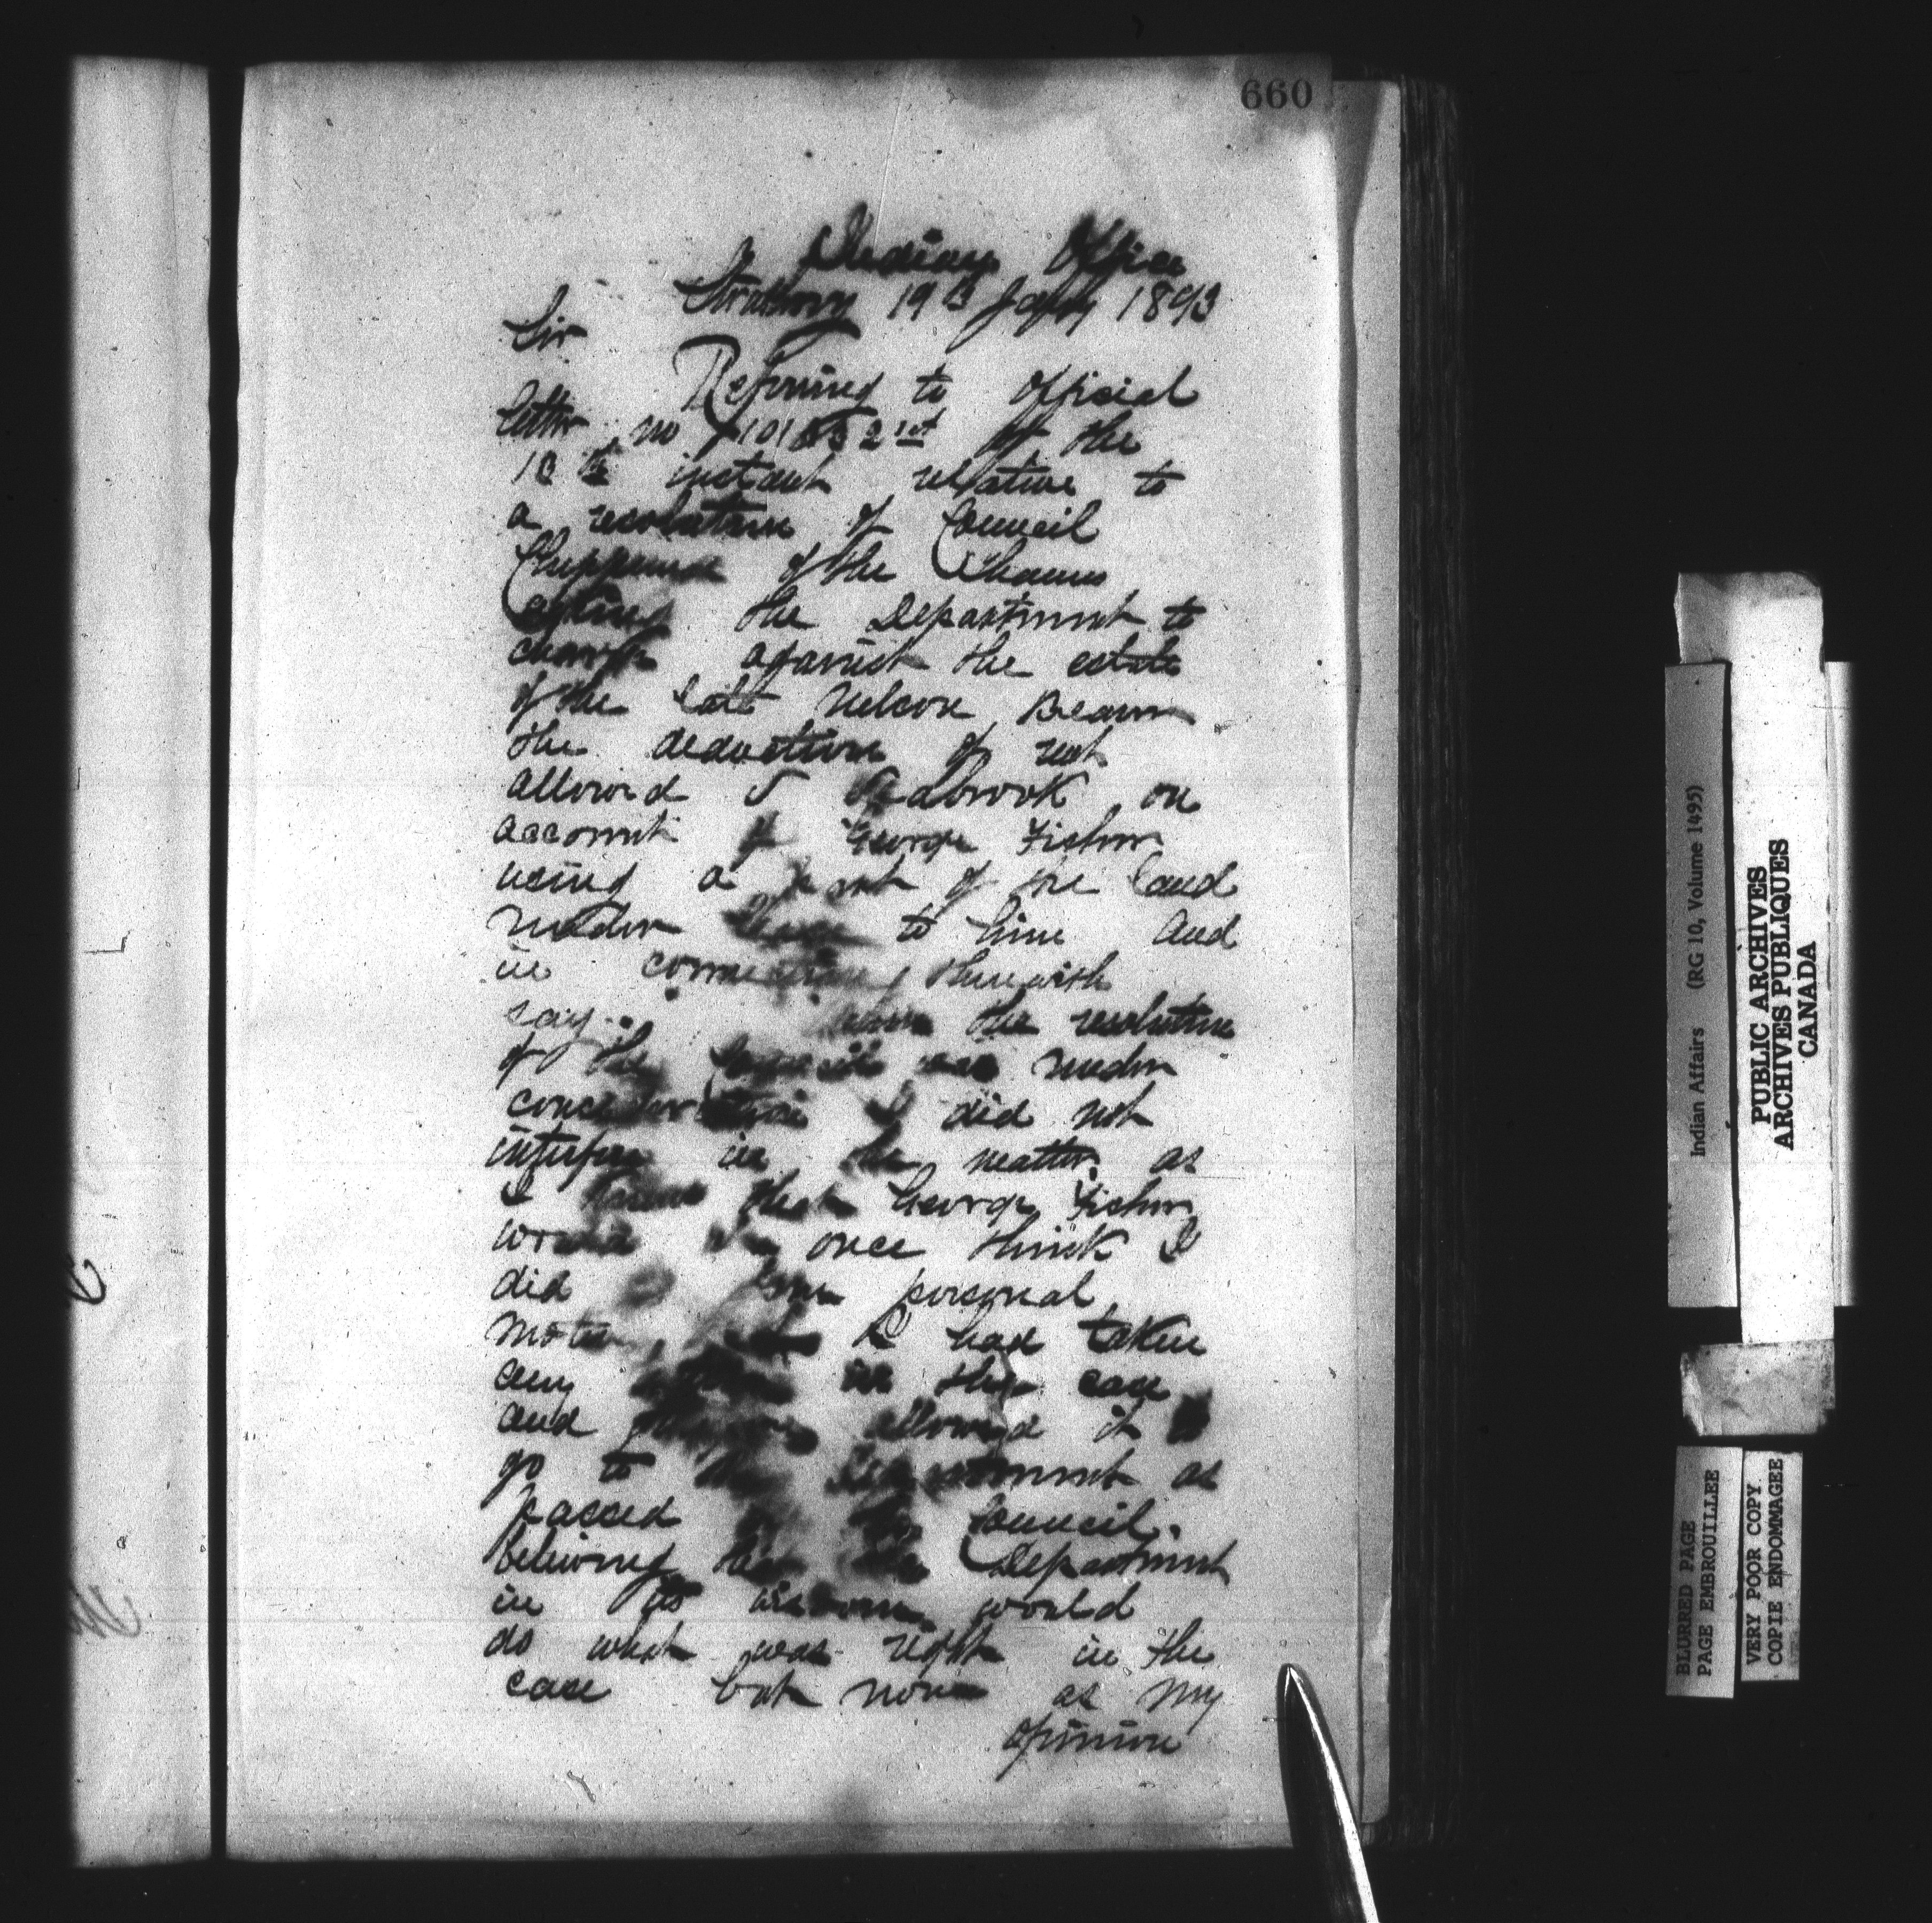 660
Indian Office
Strathroy 19th Jany 1893
Sir
Referring to official
letter no of the
instant relative to
a resolution of Council
Chippewas of the Thames
asking the Department to
charge against the estate
of the late Nelson Beaver
the deduction of rent
allowed on
account of George Fisher
using a part of the land
under lease to him and
in connection therewith
say when the resolution
of the Council was under
consideration I did not
interfere in the matter as
I knew that George Fisher
would at once think I
did so from personal
motives had I had taken
any action in the case
and allowed it to
go to the Department as
passed by the Council.
believing that the Department
in its wisdom would
do what was right in the
case but now as my
opinion
Indian Affairs (RG 10, Volume 1495)
PUBLIC ARCHIVES
ARCHIVES PUBLIQUES
CANADA
BLURRED PAGE
PAGE EMBROUILLEE
VERY POOR COPY
COPIE ENDOMMAGEE